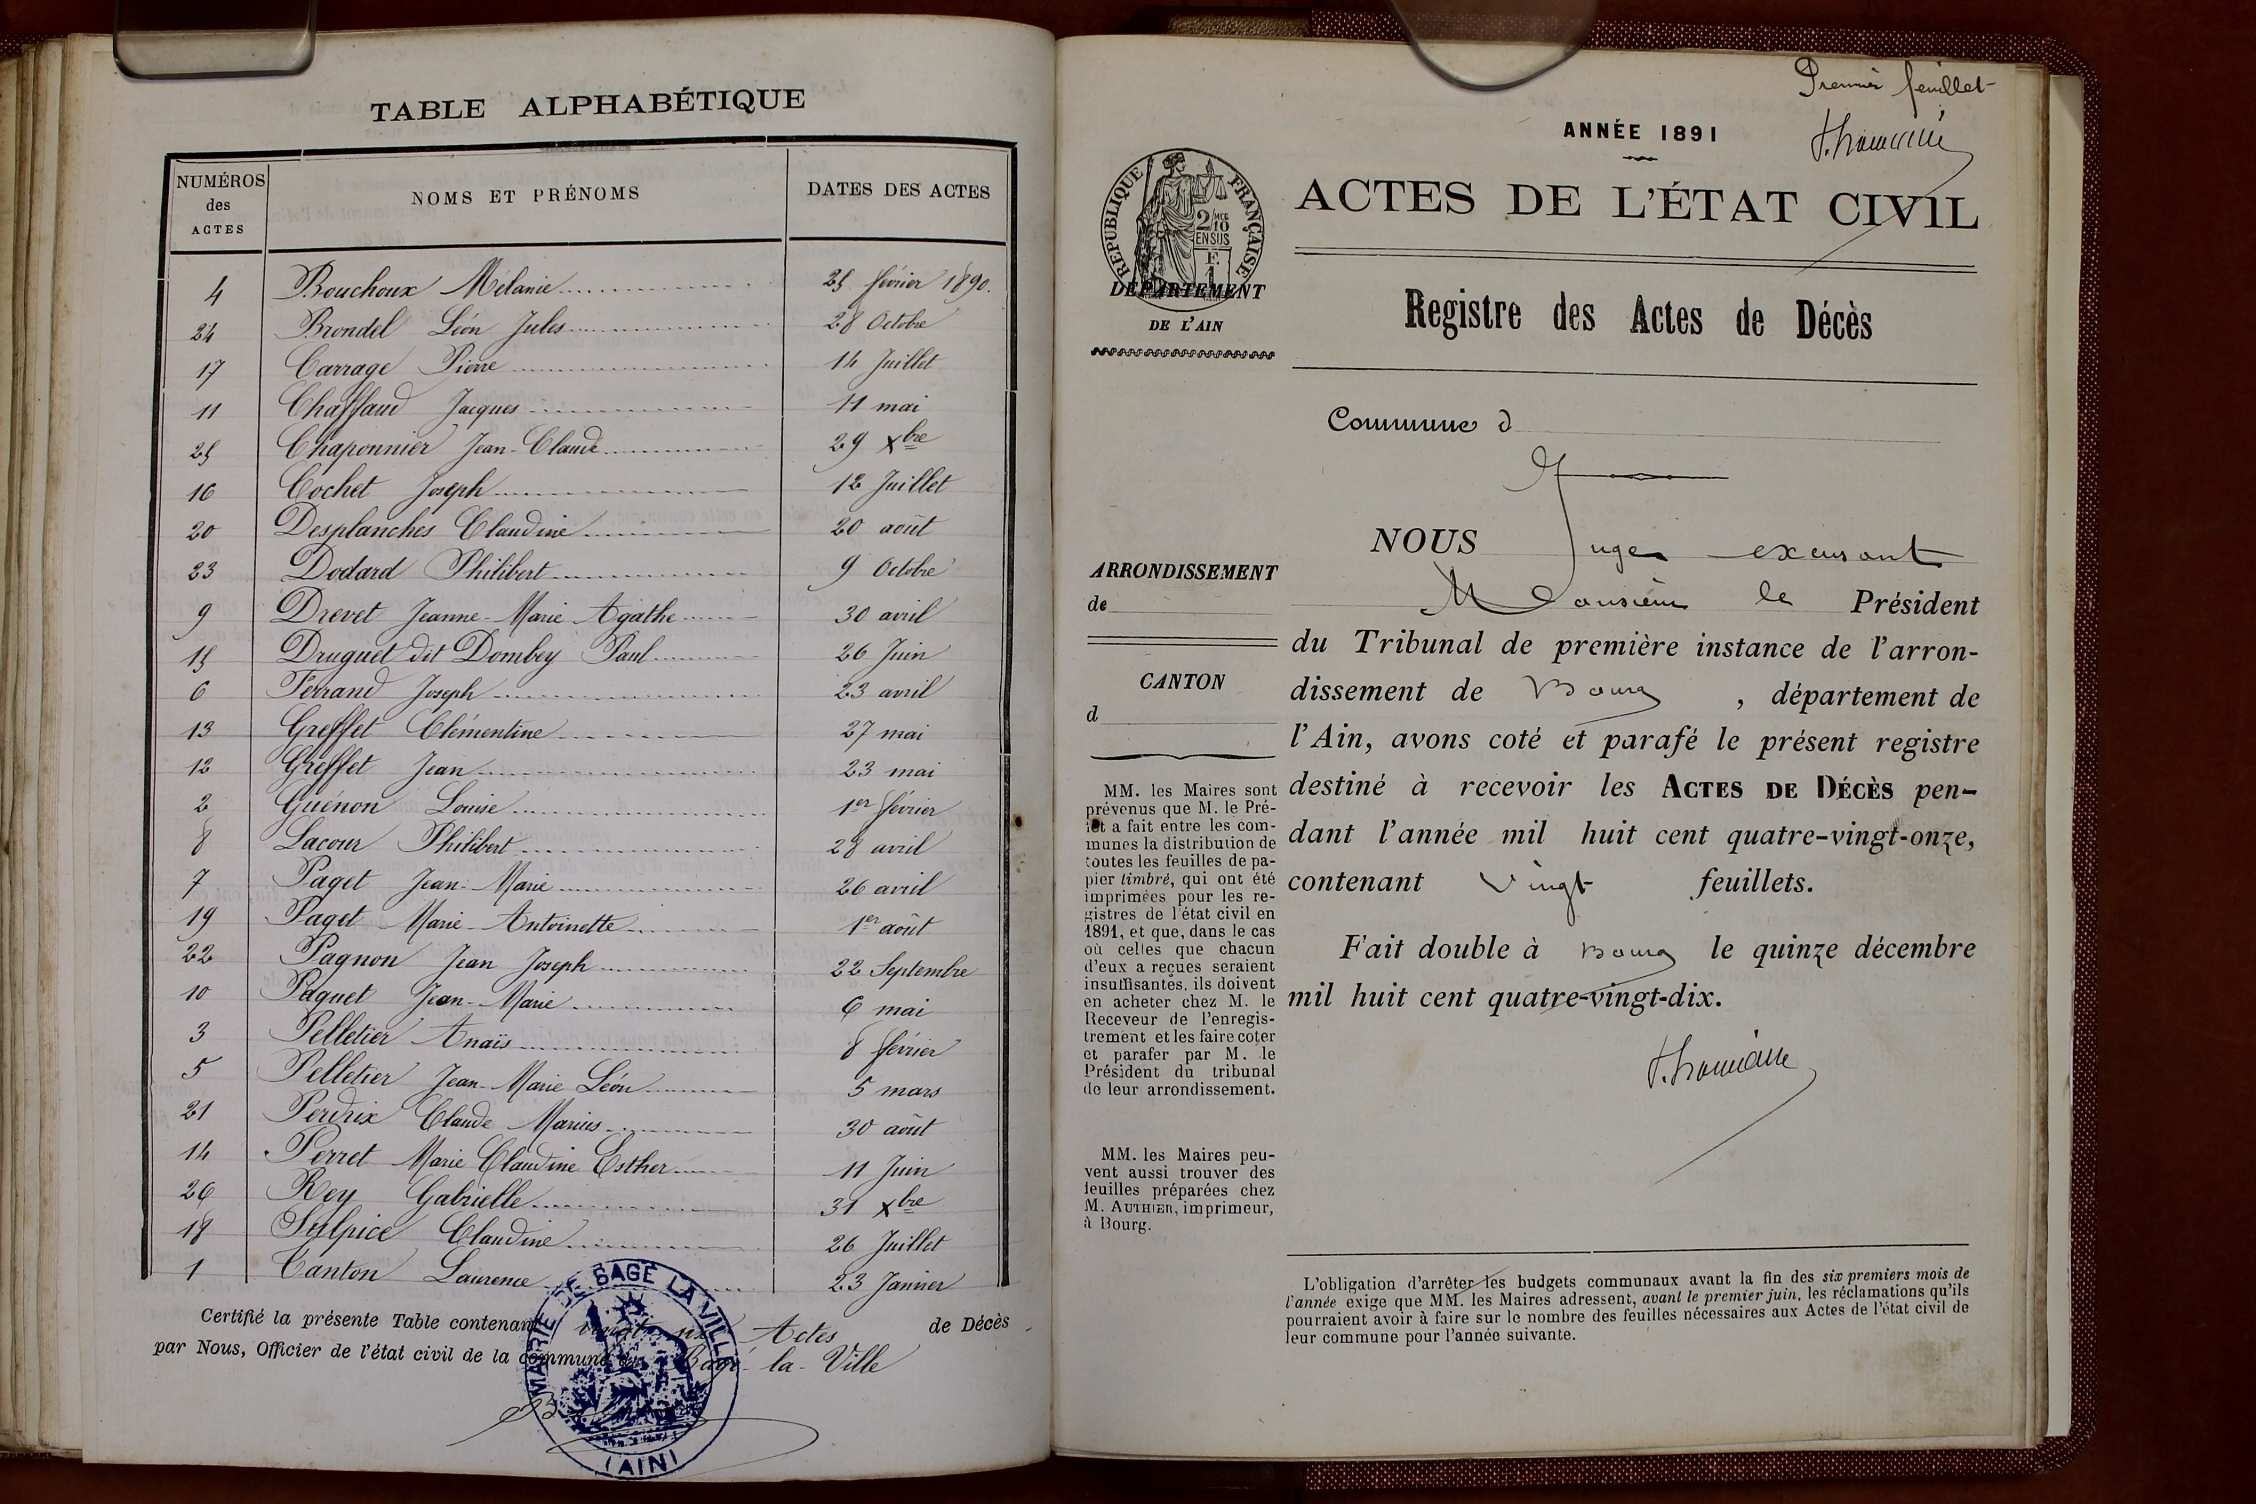 TABLE ALPHABÉTIQUE
NUMÉROS des ACTES NOMS ET PRÉNOMS DATES DES ACTES
4 Bouchoux Mélanie 25 février 1890.
24 Brondel Léon Jules 28 Octobre
17 Carrage Pierre 14 Juillet
11 Chaffaud Jacques 11 mai
25 Chaponnier Jean-Claude 29 Xbre
16 Cochet Joseph 12 Juillet
20 Desplanches Claudine 20 août
23 Dodard Philibert 9 Octobre
9 Drevet Jeanne-Marie Agathe 30 avril
15 Druguet dit Dombey Paul 26 Juin
6 Ferrand Joseph 23 avril
13 Greffet Clémentine 27 mai
12 Greffet Jean 23 mai
2 Guénon Louise 1er février
8 Lacour Philibert 28 avril
7 Paget Jean-Marie 26 avril
19 Paget Marie-Antoinette 1er août
22 Pagnon Jean Joseph 22 Septembre
10 Paquet Jean-Marie 6 mai
3 Pelletier Anaïs 8 février
5 Pelletier Jean-Marie Léon 5 mars
21 Perdrix Claude Marius 30 août
14 Perret Marie Claudine Esther 11 Juin
26 Rey Gabrielle 31 Xbre
18 Sulpice Claudine 26 Juillet
1 Tanton Laurence 23 Janvier
Certifié la présente Table contenant vingt six Actes de Décès
par Nous, Officier de l'état civil de la commune de Bagé-la-Ville
MAIRIE DE BAGÉ LA VILLE
(AIN)
Premier feuillet
ANNÉE 1891
ACTES DE L'ÉTAT CIVIL
RÉPUBLIQUE FRANÇAISE
DÉPARTEMENT
DE L'AIN
Registre des Actes de Décès
Commune d
NOUS Juge excusant
Monsieur le Président
du Tribunal de première instance de l'arron-
dissement de Bourg, département de
l'Ain, avons coté et parafé le présent registre
destiné à recevoir les ACTES DE DÉCÈS pen-
dant l'année mil huit cent quatre-vingt-onze,
contenant vingt feuillets.
Fait double à Bourg le quinze décembre
mil huit cent quatre-vingt-dix.
ARRONDISSEMENT
de
CANTON
d
MM. les Maires sont
prévenus que M. le Pré-
fet a fait entre les com-
munes la distribution de
toutes les feuilles de pa-
pier timbré, qui ont été
imprimées pour les re-
gistres de l'état civil en
1891, et que, dans le cas
où celles que chacun
d'eux a reçues seraient
insuffisantes, ils doivent
en acheter chez M. le
Receveur de l'enregis-
trement et les faire coter
et parafer par M. le
Président du tribunal
de leur arrondissement.
MM. les Maires peu-
vent aussi trouver des
feuilles préparées chez
M. AUTHIER, imprimeur,
à Bourg.
L'obligation d'arrêter les budgets communaux avant la fin des six premiers mois de
l'année exige que MM. les Maires adressent, avant le premier juin, les réclamations qu'ils
pourraient avoir à faire sur le nombre des feuilles nécessaires aux Actes de l'état civil de
leur commune pour l'année suivante.